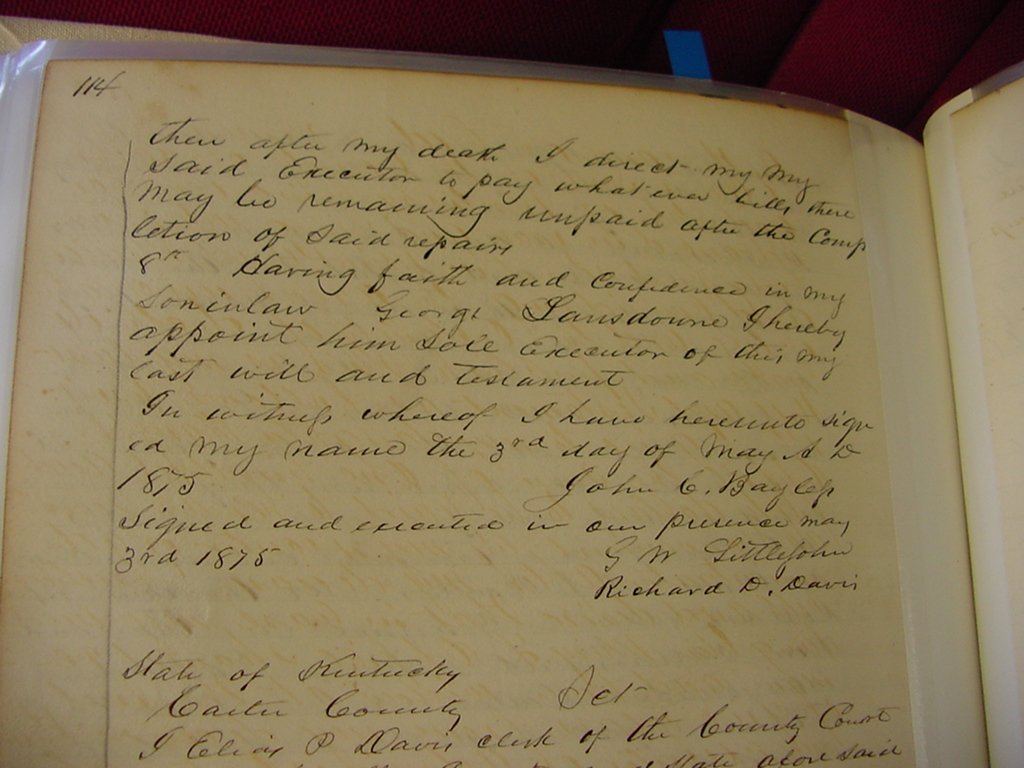 114
then after my death I direct my my
said Executor to pay what ever bills there
may be remaining unpaid after the Comp
letion of said repairs
8th Having faith and Confidence in my
soninlaw George Lansdowne I hereby
appoint him sole Executor of this my
last will and testament
In witness whereof I have hereunto sign
ed my name the 3rd day of May A D
1878
John C. Bayless
Signed and executed in our presence may
3rd 1878
G W Littlejohn
Richard D. Davis
State of Kentucky
Carter County Sct
I Elias P Davis clerk of the County Court
and State aforesaid